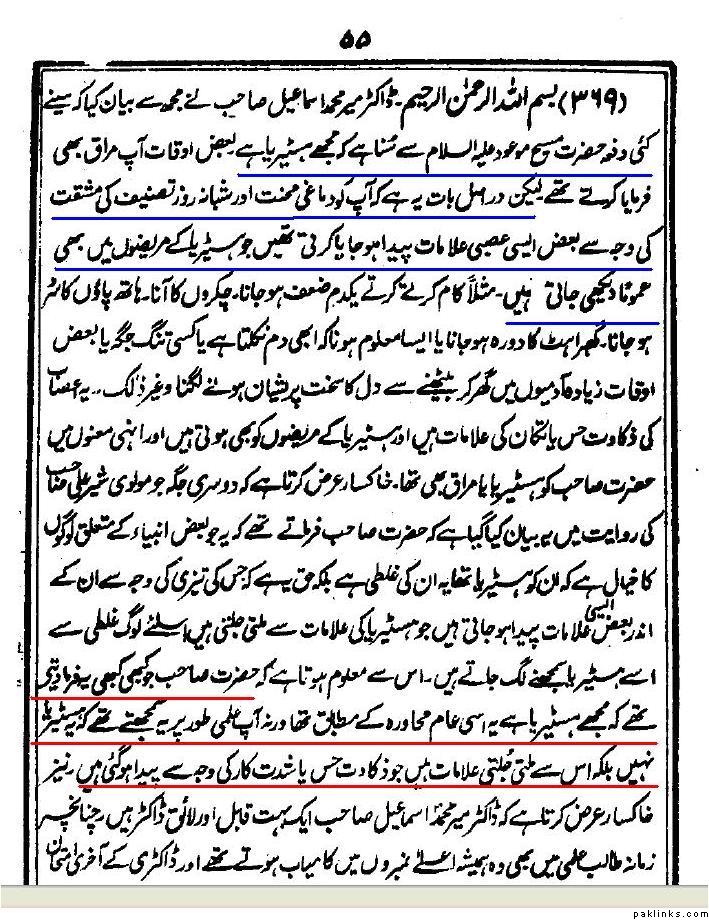 ۵۵
(۳۶۹) بسم اللہ الرحمٰن الرحیم۔ ڈاکٹر میر محمد اسماعیل صاحب نے مجھ سے بیان کیا کہ مینے
کئی دفعہ حضرت مسیح موعود علیہ السلام سے سُنا ہے کہ مجھے ہسٹیریا ہے بعض اوقات آپ مراق بھی
فرمایا کرتے تھے لیکن دراصل بات یہ ہے کہ آپ کو دماغی محنت اور شبانہ روز تصنیف کی مشقت
کی وجہ سے بعض ایسی عصبی علامات پیدا ہو جایا کرتی تھیں جو ہسٹیریا کے مریضوں میں بھی
عموماً دیکھی جاتی ہیں۔ مثلاً کام کرتے کرتے یکدم ضعف ہو جانا۔ چکروں کا آنا۔ ہاتھ پاؤں کا سرد
ہو جانا۔ گھبراہٹ کا دورہ ہو جانا یا ایسا معلوم ہونا کہ ابھی دم نکلتا ہے یا کسی تنگ جگہ یا بعض
اوقات زیادہ آدمیوں میں گھر کر بیٹھنے سے دل کا سخت پریشان ہونے لگنا وغیر ذٰلک۔ یہ اعصاب
کی ذکاوت حس یا تکان کی علامات ہیں اور ہسٹیریا کے مریضوں کو بھی ہوتی ہیں اور انہی معنوں میں
حضرت صاحب کو ہسٹیریا یا مراق بھی تھا۔ خاکسار عرض کرتا ہے کہ دوسری جگہ جو مولوی شیر علی صاحب
کی روایت میں یہ بیان کیا گیا ہے کہ حضرت صاحب فرماتے تھے کہ یہ جو بعض انبیاء کے متعلق لوگوں
کا خیال ہے کہ ان کو ہسٹیریا تھا یہ ان کی غلطی ہے بلکہ حق یہ ہے کہ حس کی تیزی کی وجہ سے ان کے
اندر بعض ایسی علامات پیدا ہو جاتی ہیں جو ہسٹیریا کی علامات سے ملتی جلتی ہیں اسلئے لوگ غلطی سے
اسے ہسٹیریا سمجھنے لگ جاتے ہیں۔ اس سے معلوم ہوتا ہے کہ حضرت صاحب جو کبھی کبھی یہ فرما دیتے
تھے کہ مجھے ہسٹیریا ہے یہ اسی عام محاورہ کے مطابق تھا ورنہ آپ علمی طور پر یہ سمجھتے تھے کہ یہ ہسٹیریا
نہیں بلکہ اس سے ملتی جُلتی علامات ہیں جو ذکاوت حس یا شدت کار کی وجہ سے پیدا ہو گئی ہیں۔ نیز
خاکسار عرض کرتا ہے کہ ڈاکٹر میر محمد اسماعیل صاحب ایک بہت قابل اور لائق ڈاکٹر ہیں۔ چنانچہ
زمانہ طالب علمی میں بھی وہ ہمیشہ اعلےٰ نمبروں میں کامیاب ہوتے تھے اور ڈاکٹری کے آخری امتحان
paklinks.com